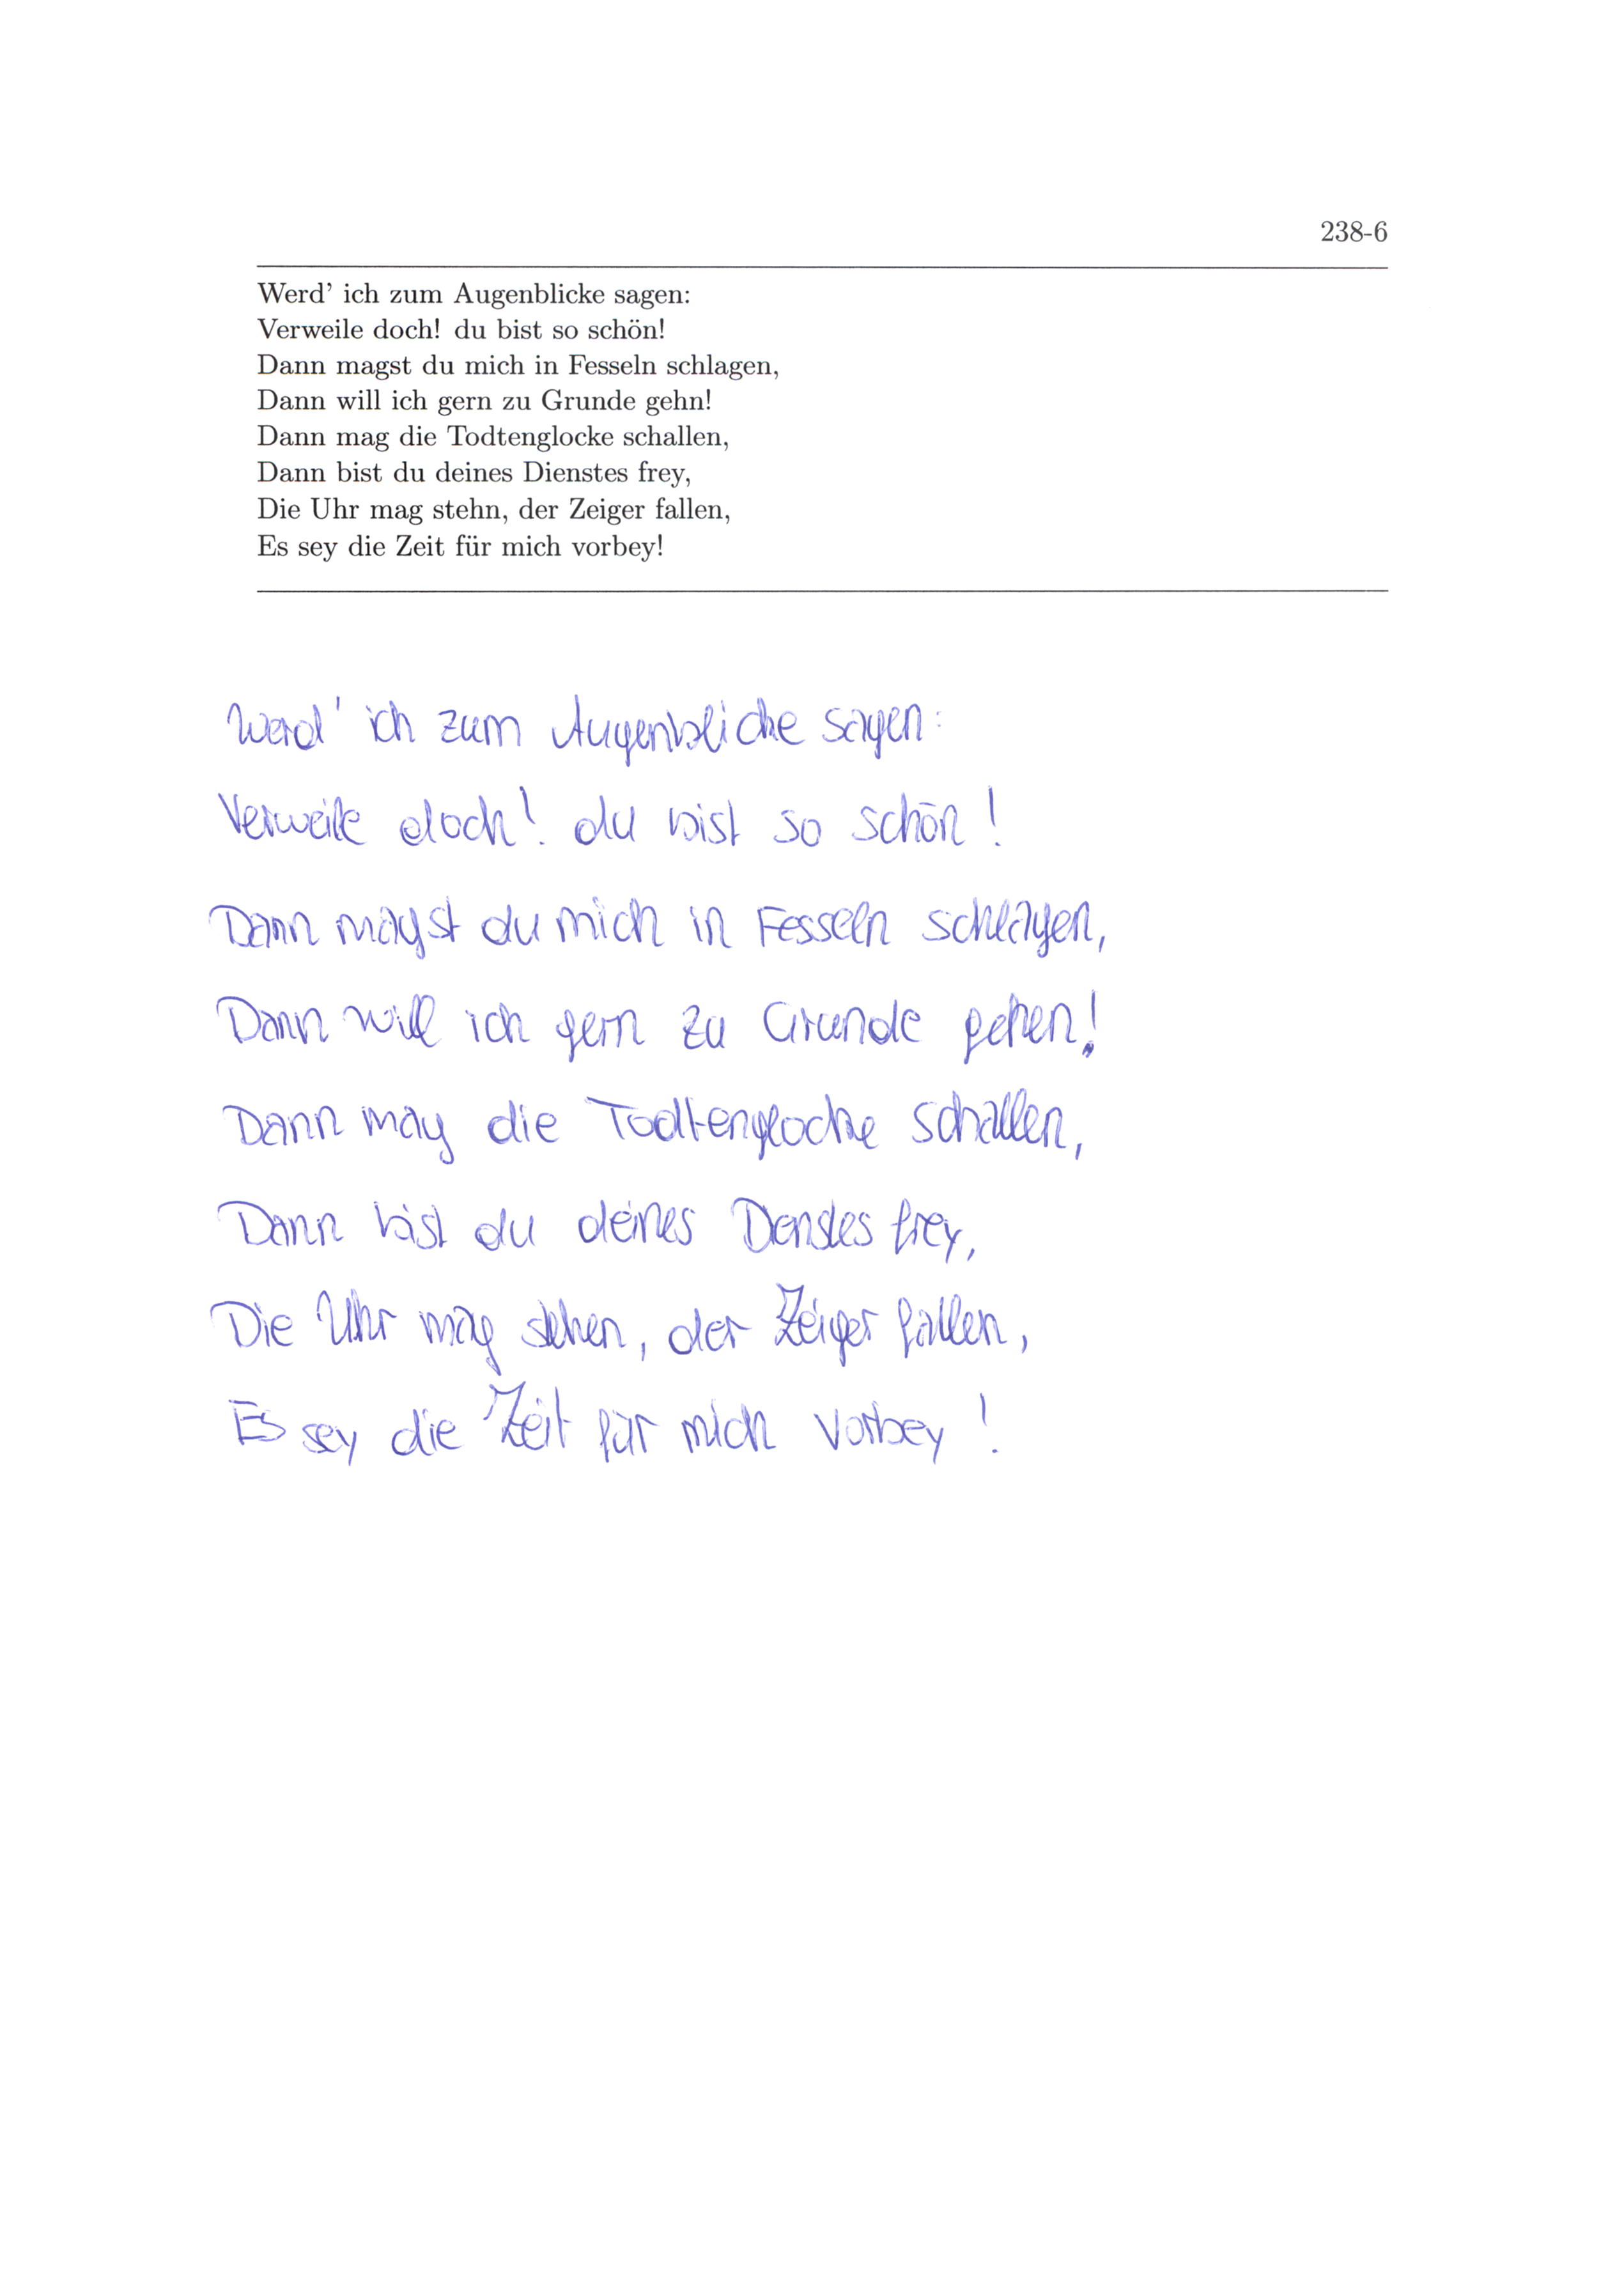 238-6
Werd' ich zum Augenblicke sagen:
Verweile doch! du bist so schön!
Dann magst du mich in Fesseln schlagen,
Dann will ich gern zu Grunde gehn!
Dann mag die Todtenglocke schallen,
Dann bist du deines Dienstes frey,
Die Uhr mag stehn, der Zeiger fallen,
Es sey die Zeit für mich vorbey!
Werd' ich zum Augenblicke sagen:
Verweile doch! du bist so schön!
Dann magst du mich in Fesseln schlagen,
Dann will ich gern zu Grunde gehen!
Dann mag die Todtenglocke schallen,
Dann bist du deines Denstes frey,
Die Uhr mag stehen, der Zeiger fallen,
Es sey die Zeit für mich vorbey!